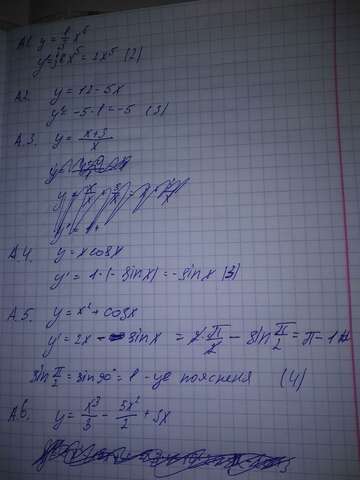 А1. y = 1/3 x⁶
y' = 1/3 · 6x⁵ = 2x⁵ (2)
А2. y = 12 - 5x
y' = -5 · 1 = -5 (3)
А.3. y = (x+3)/x
А.4. y = x cos x
y' = 1 · (- sin x) = - sin x (3)
А.5. y = x² + cos x
y' = 2x - sin x = 2 π/2 - sin π/2 = π - 1
sin π/2 = sin 90° = 1 - це пояснення (4)
А6. y = x³/3 - 5x²/2 + 3x